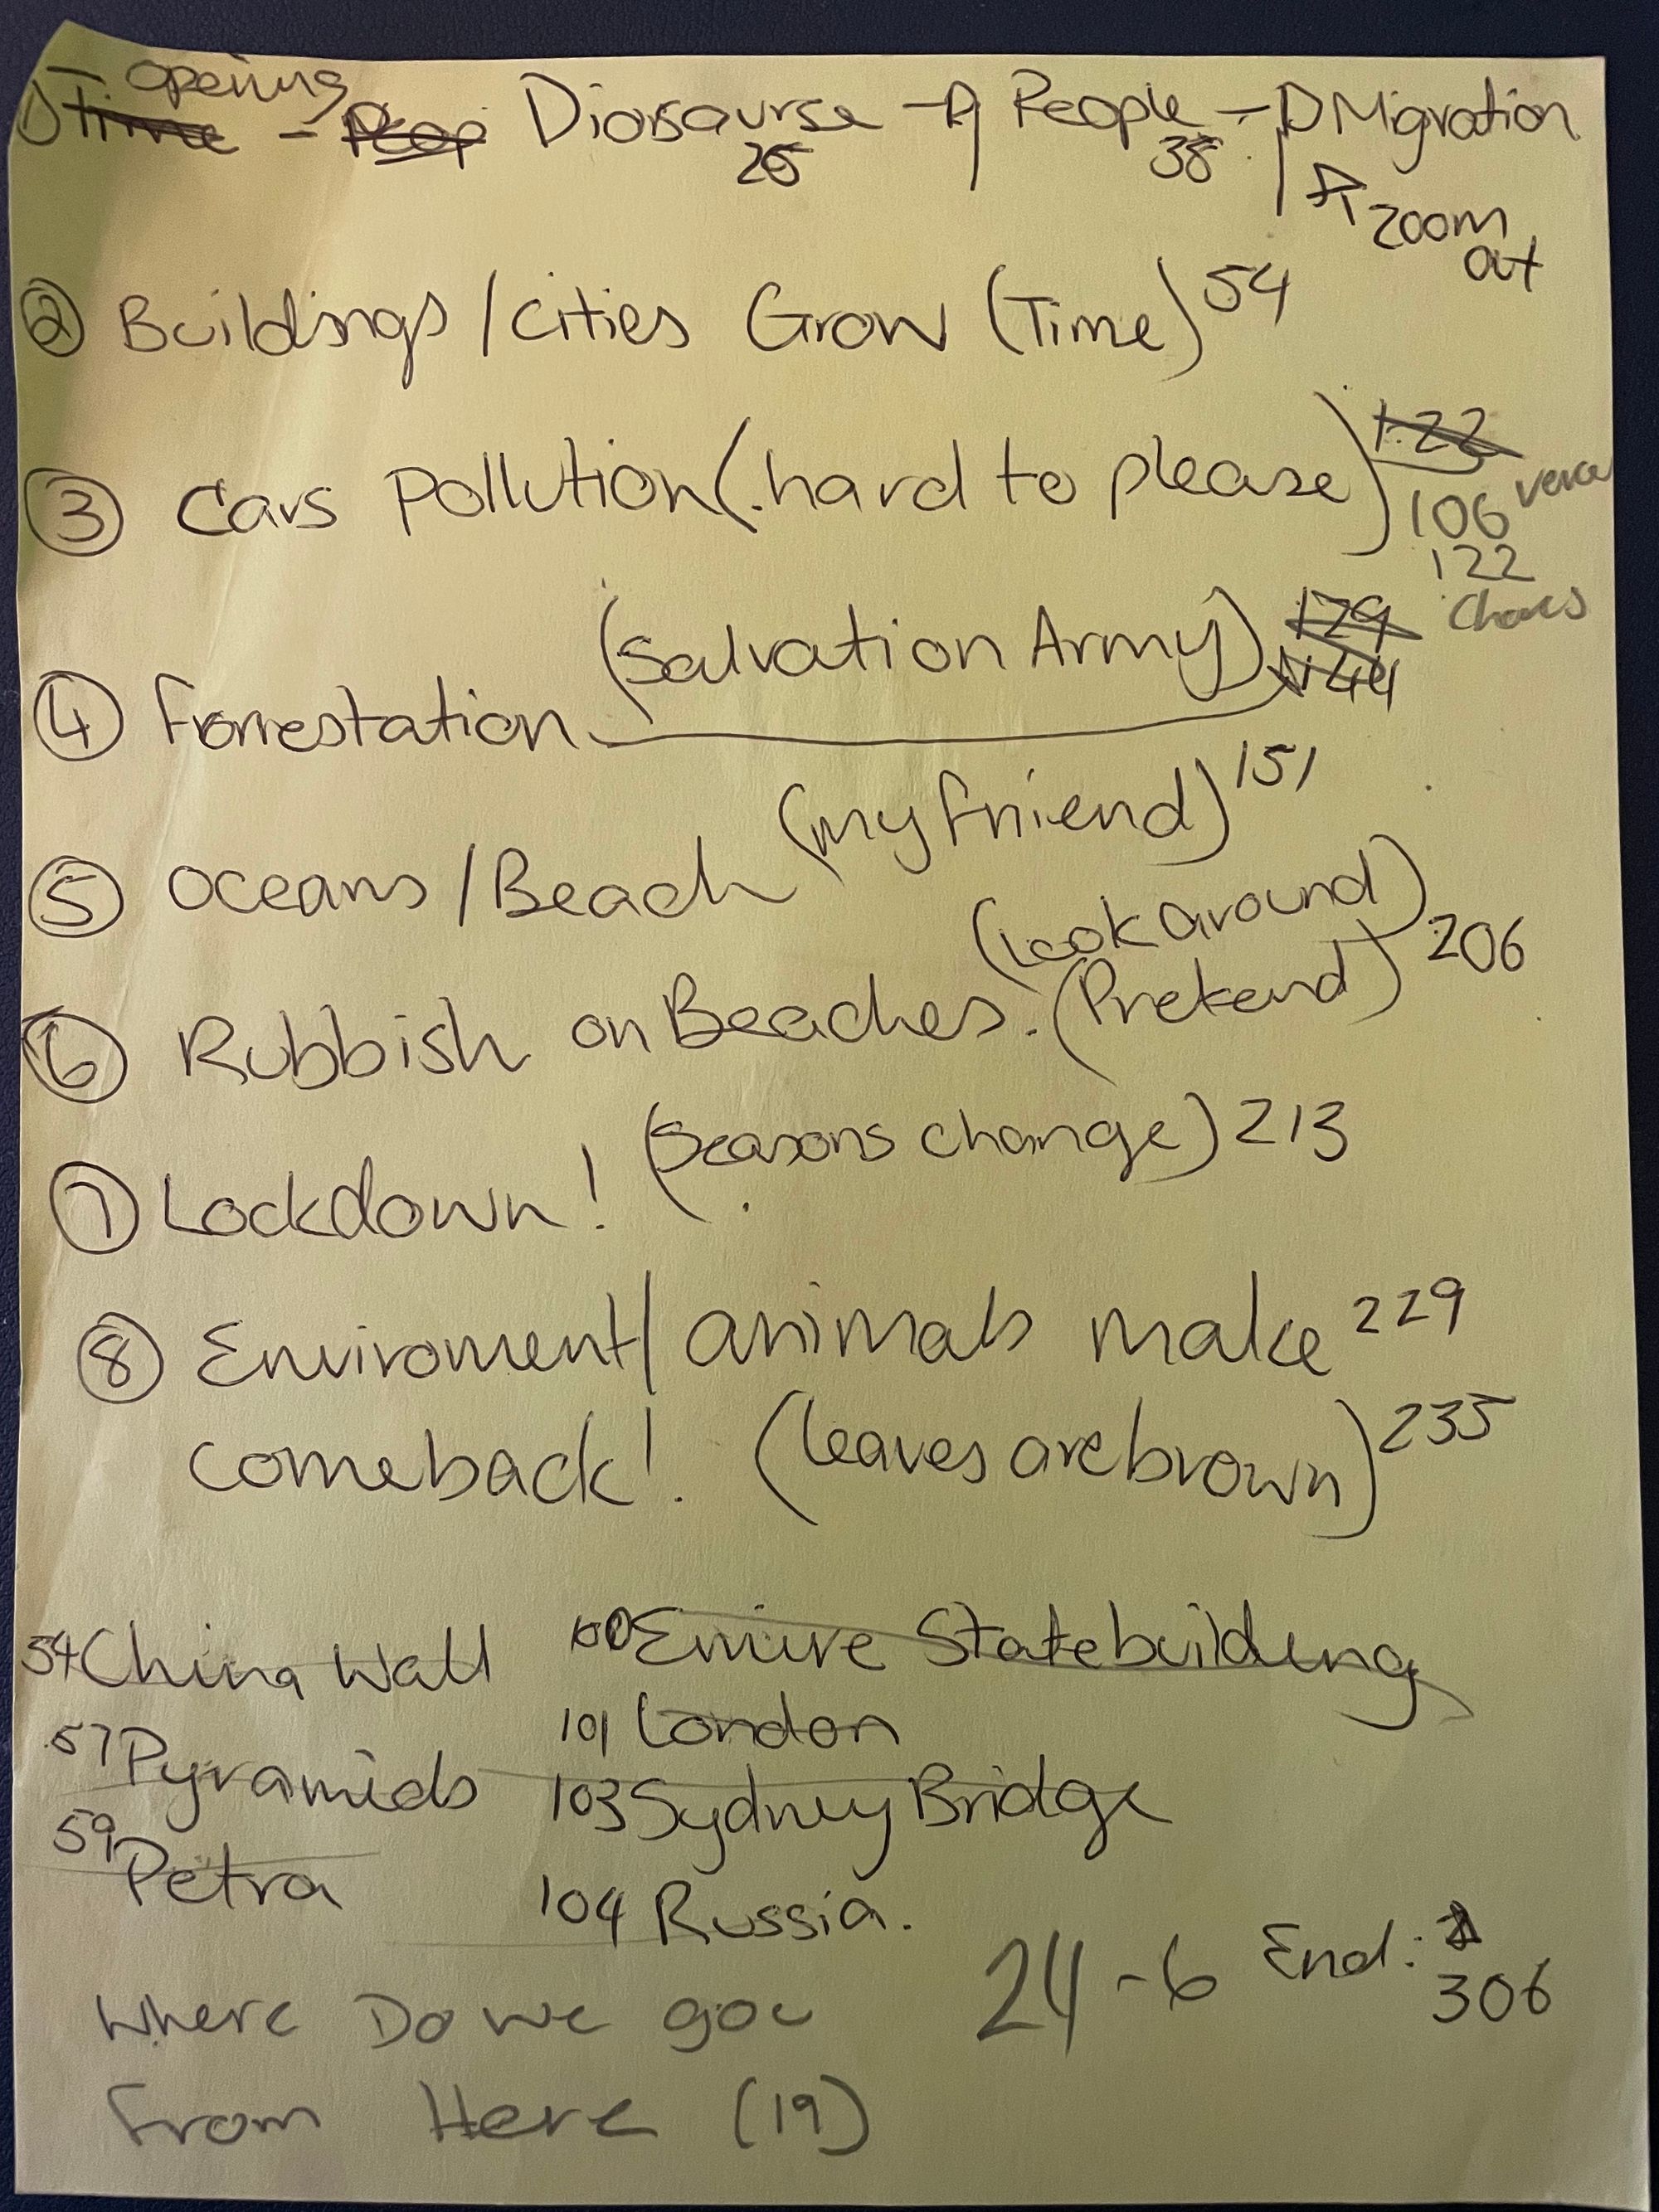 opening
1) Time - Peop Diorsaurse → People → Migration
25 38
zoom
out
② Buildings/cities Grow (Time) 54
③ Cars Pollution (hard to please) 1.22
106 verce
122
(Salvation Army) 129
144
④ forrestation
(my friend) 151
⑤ oceans/Beach
(Look around)
⑥ Rubbish on Beaches. (Pretend) 206
(Seasons change) 213
⑦ Lockdown!
⑧ Enviroment/animals make 229
comeback! (leaves are brown) 235
54 China Wall Emire Statebuilding
57 Pyramids 101 London
59 Petra 103 Sydney Bridge
104 Russia.
24-6 End:
306
Where Do we goe
From Here (19)